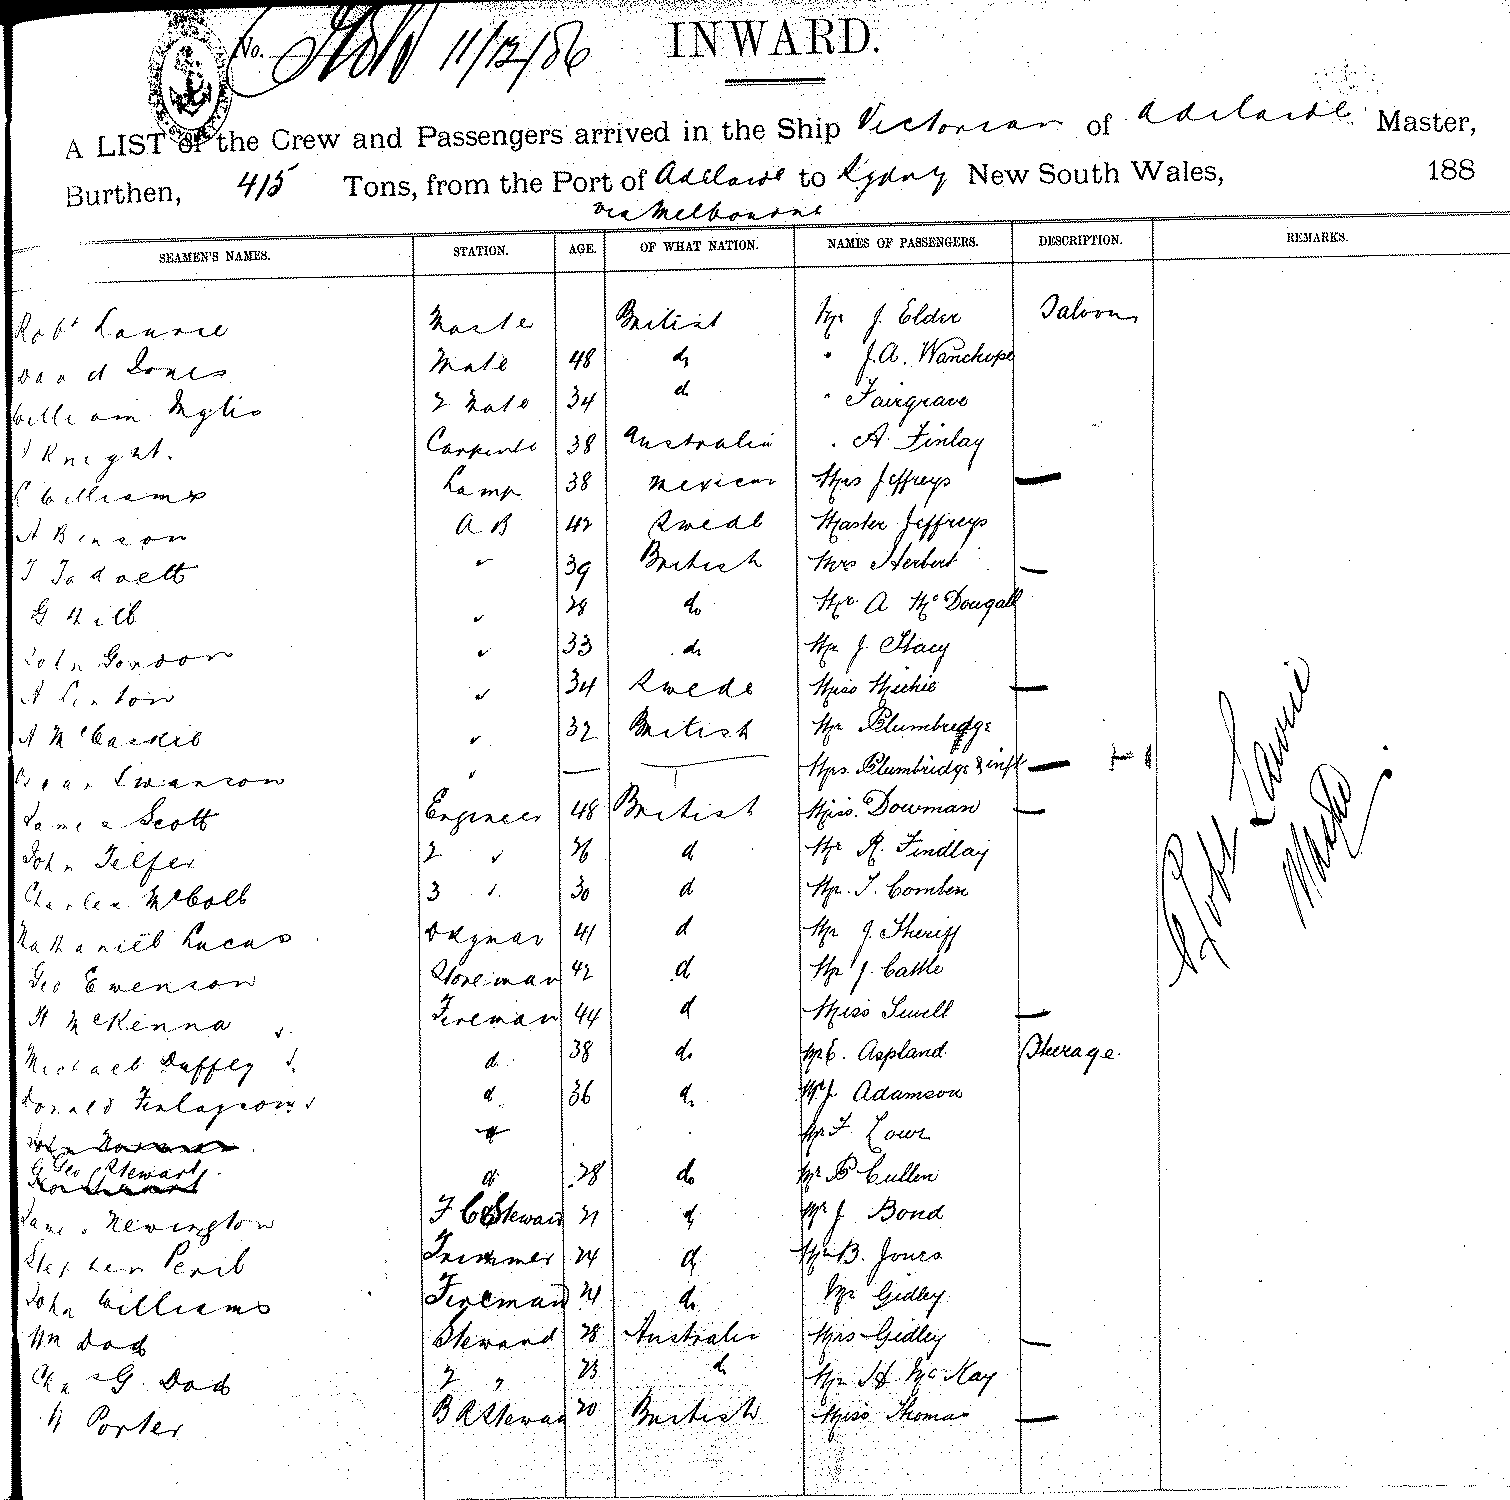 No. 11/12/86
INWARD.
A LIST of the Crew and Passengers arrived in the Ship Victorian of Adelaide Master,
Burthen, 415 Tons, from the Port of Adelaide to Sydney New South Wales, 188
via Melbourne
SEAMEN'S NAMES. STATION. AGE. OF WHAT NATION. NAMES OF PASSENGERS. DESCRIPTION. REMARKS.
Robt Laurie Master British Mr J. Elder Saloon
David Jones Mate 48 do " J.A. Wanchope
William 2 Mate 34 do " Fairgrave
Knight. Carpenter 38 Australia " A. Finlay
Williams Lamp 38 Mexican Mrs Jeffreys —
A Benson A B 42 Swede Master Jeffreys
T " 39 British Mrs Herbert —
G " 28 do Mr A McDougall
John Gordon " 33 do Mr J. Stacy
A Linton " 34 Swede Miss Michie —
A McCaskil " 32 British Mr Plumbredge
Swanson " — — Mrs Plumbridge & inft —
James Scott Engineer 48 British Miss Dowman —
John Telfer 2 " 26 d Mr R. Findlay
Charles McColl 3 " 30 d Mr T. Comben
Nathaniel Lucas 41 d Mr J. Sheriff
Geo Evenson Storeman 42 d Mr J. Cattle
H McKenna Fireman 44 d Miss Sewell —
Michael Duffey d 38 do Mr E. Aspland Steerage.
Donald Finlayson d 36 do Mr J Adamson
d Mr F. Lowe
Geo Stewart d 28 do Mr P Cullen
James Newington F C Steward 21 d Mr J Bond
Stephen Penil Trimmer 24 d Mr B. Jones
John Williams Fireman 21 do Mr Gidley
Wm Dod Steward 28 Australia Mrs Gidley —
Chas G. Dod 2 " 23 d Mr H McKay
H Porter B R Steward 20 British Miss Thomas —
Robt Laurie
Master